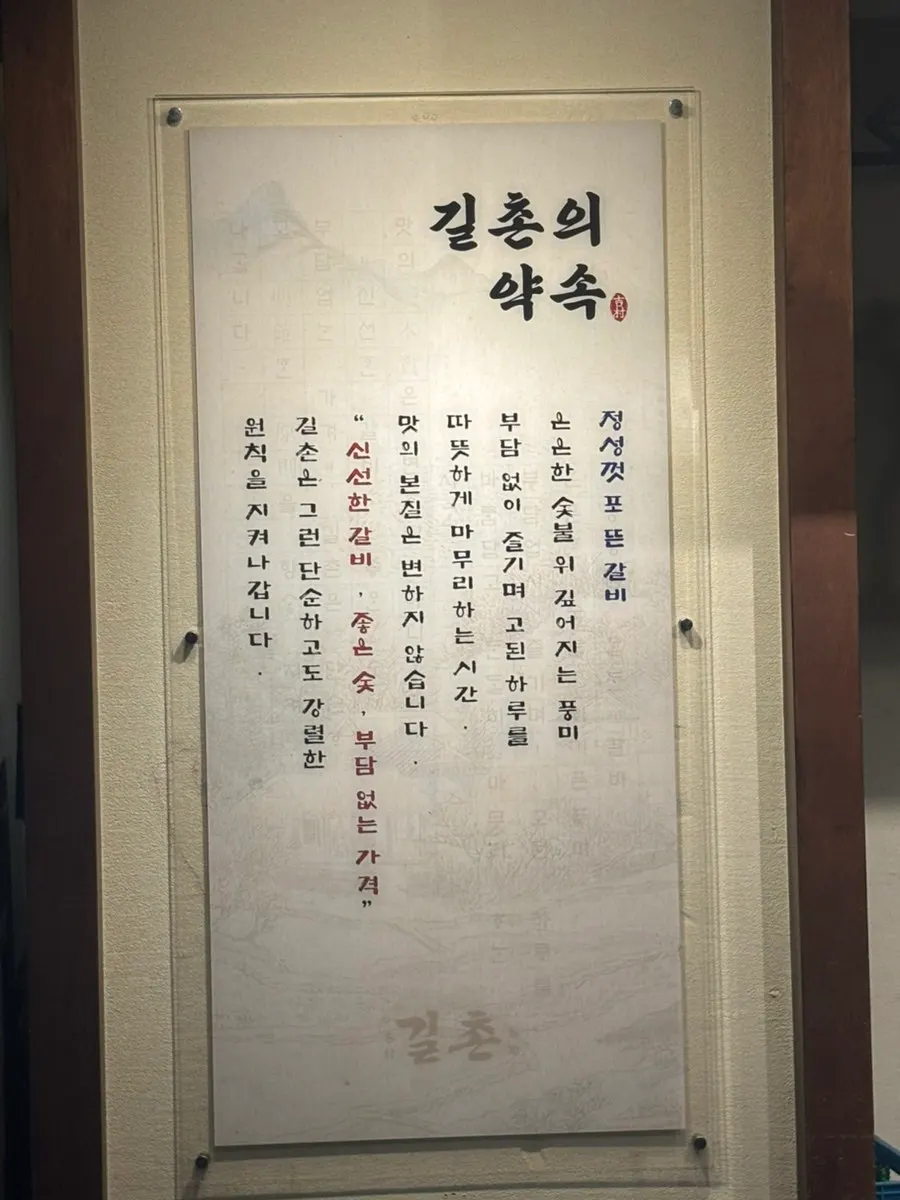 길촌의
약속
吉村
정성껏 포 뜬 갈비
은은한 숯불 위 깊어지는 풍미
부담 없이 즐기며 고된 하루를
따뜻하게 마무리하는 시간.
맛의 본질은 변하지 않습니다.
“신선한 갈비, 좋은 숯, 부담 없는 가격”
길촌은 그런 단순하고도 강렬한
원칙을 지켜나갑니다.
길촌